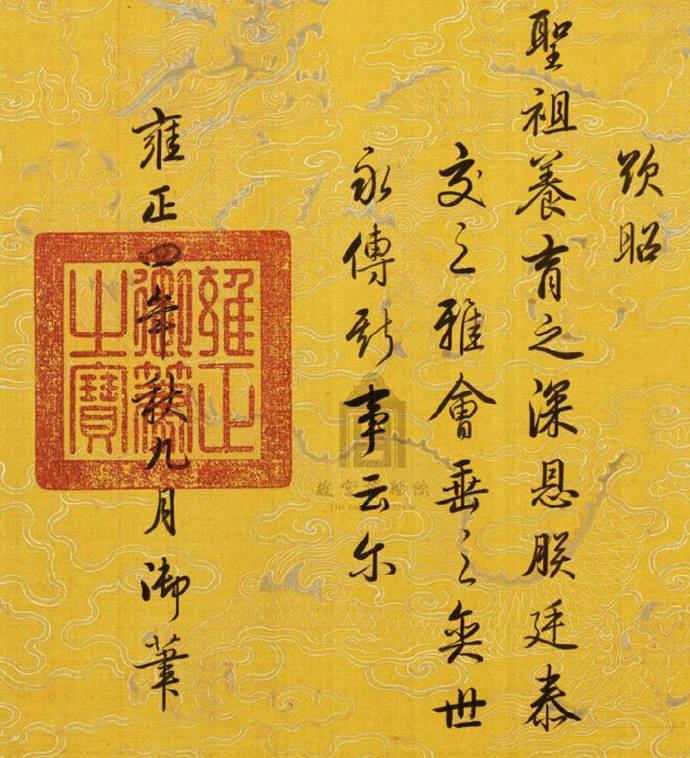 以昭
聖祖養育之深恩朕廷泰
交之雅會垂之奕世
永傳斯事云尔
雍正四年秋九月御筆
雍正
御筆
之寶
故宫博物院